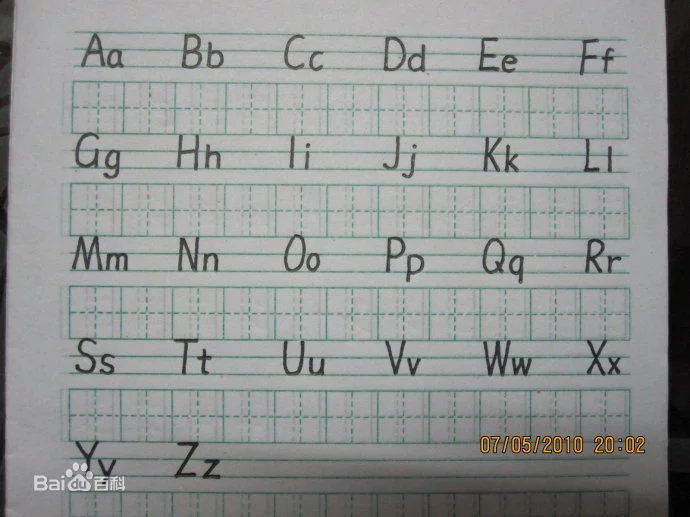 Aa Bb Cc Dd Ee Ff
Gg Hh Ii Jj Kk Ll
Mm Nn Oo Pp Qq Rr
Ss Tt Uu Vv Ww Xx
07/05/2010 20:02
Yy Zz
Baidu百科